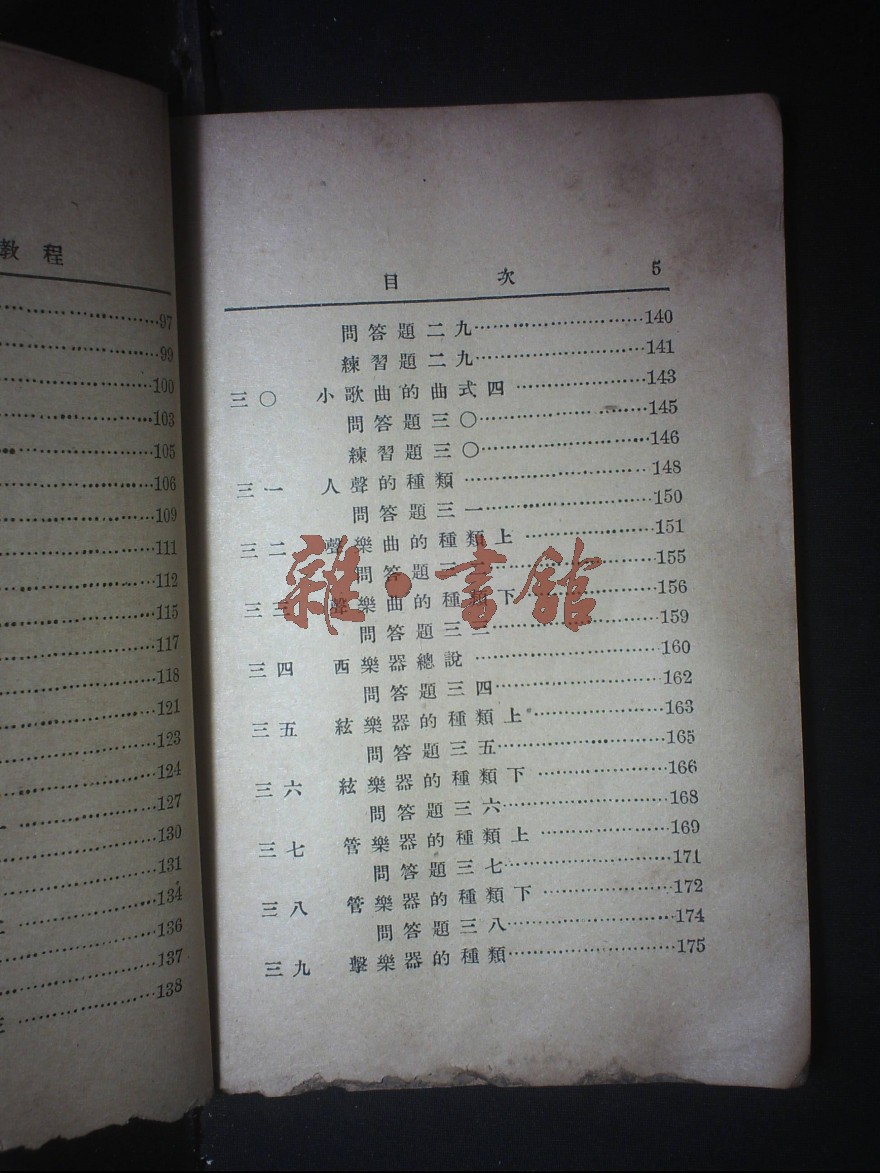 教程
97
99
100
103
105
106
109
111
112
115
117
118
121
123
124
127
130
131
134
136
137
138
目次 5
問答題二九 140
練習題二九 141
三〇 小歌曲的曲式四 143
問答題三〇 145
練習題三〇 146
三一 人聲的種類 148
問答題三一 150
三二 聲樂曲的種類上 151
問答題三二 155
三三 聲樂曲的種類下 156
問答題三三 159
三四 西樂器總說 160
問答題三四 162
三五 絃樂器的種類上 163
問答題三五 165
三六 絃樂器的種類下 166
問答題三六 168
三七 管樂器的種類上 169
問答題三七 171
三八 管樂器的種類下 172
問答題三八 174
三九 擊樂器的種類 175
雜·書館